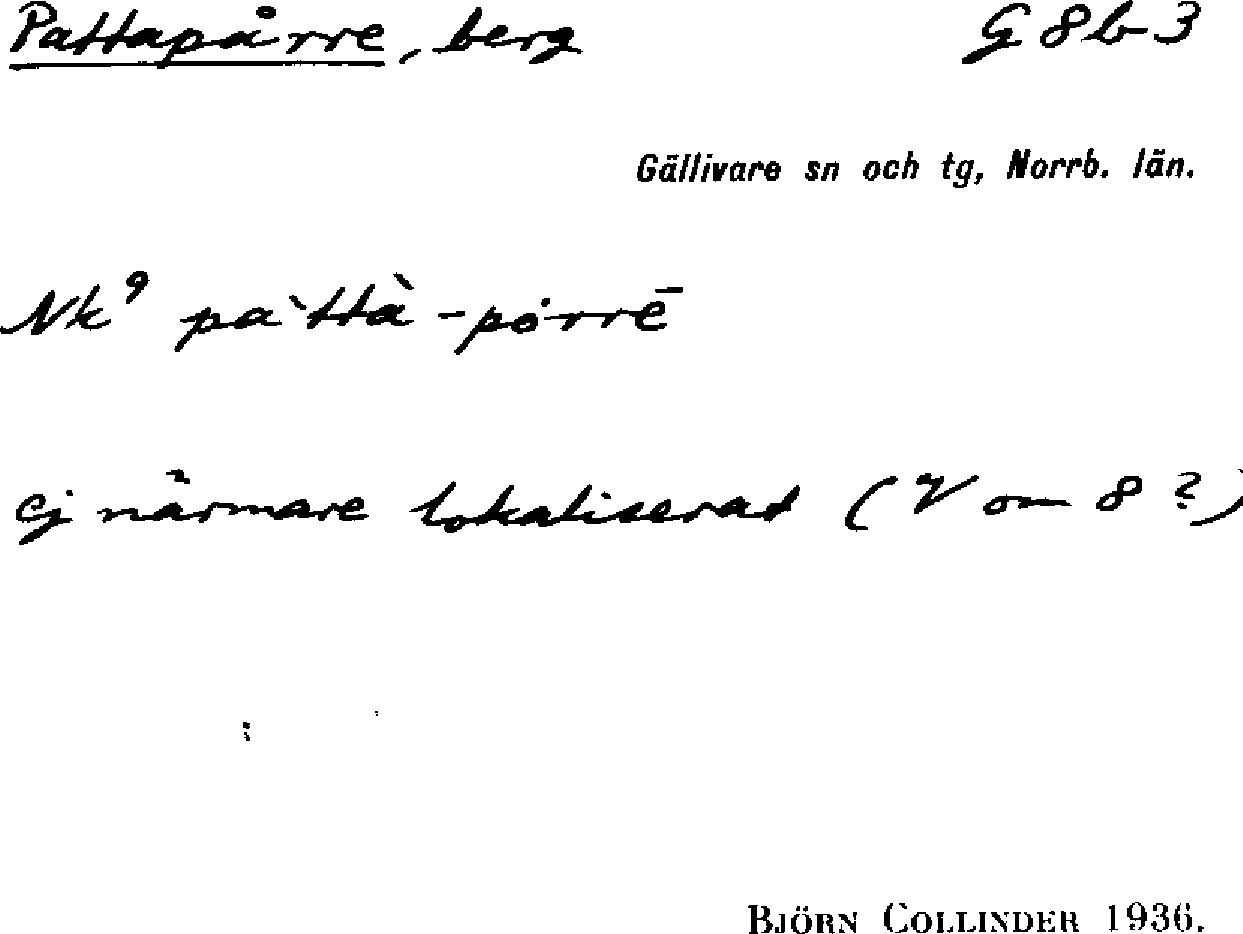 Pattapårre, berg G 8 b 3
Gällivare sn och tg, Norrb. län.
Nk⁹ pa`ttà-pȯrrē
ej närmare lokaliserad (V om 8 ?)
BJÖRN COLLINDER 1936.